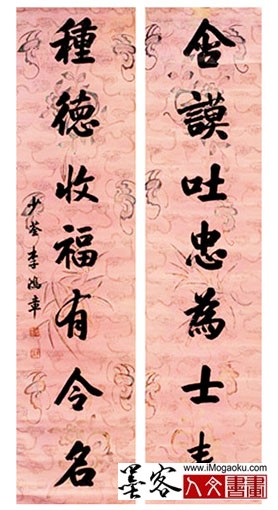 含謨吐忠為士表
種德收福有令名
少荃李鴻章
www.iMogaoku.com
墨客人文書畫